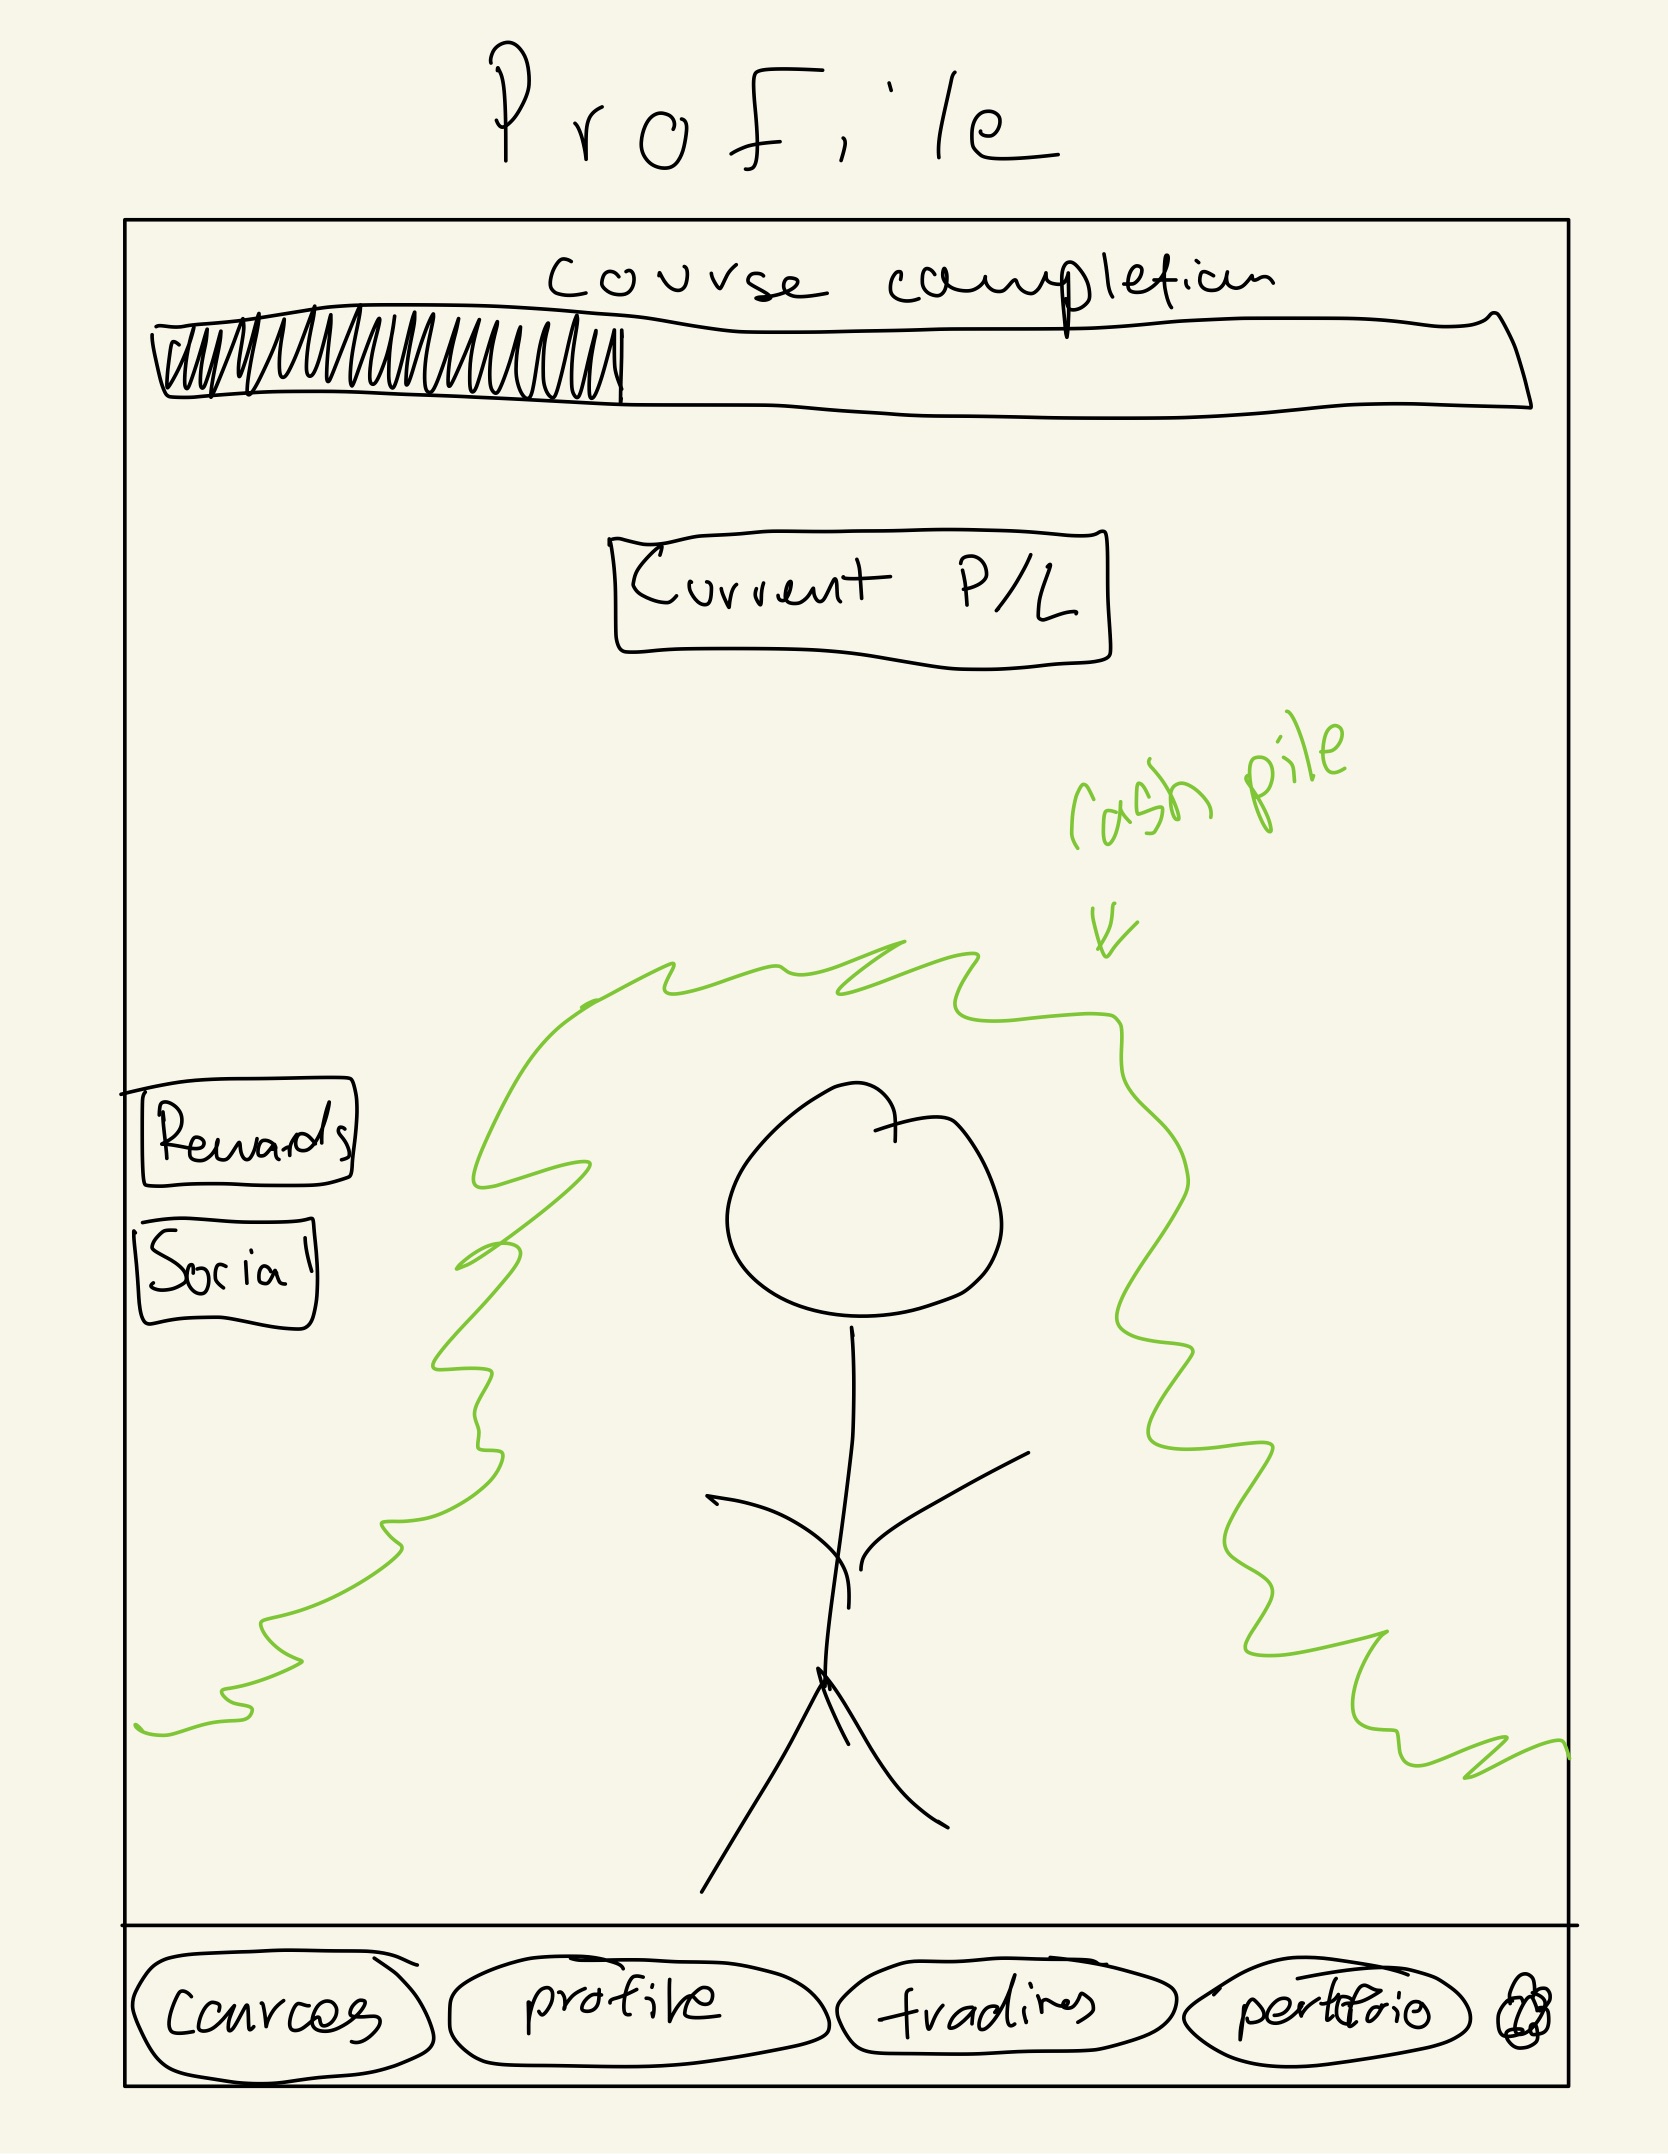 Profile
Course completion
Current P/L
Cash pile
Rewards
Social
profile trading